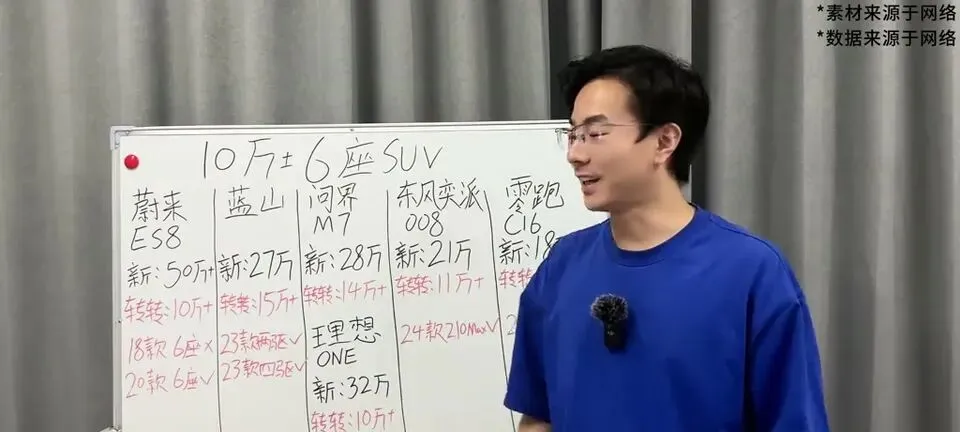 *素材来源于网络
*数据来源于网络
10万± 6座SUV
蔚来
ES8
新:50万+
转转:10万+
18款 6座×
20款 6座√
蓝山
新:27万
转转:15万+
23款两驱√
23款四驱√
问界
M7
新:28万
转转:14万+
理想
ONE
新:32万
转转:10万+
东风奕派
008
新:21万
转转:11万+
24款210Max√
零跑
C16
新:18
转转
2